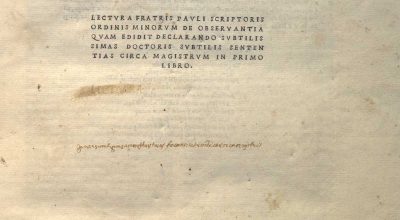 LECTVRA FRATRIS PAVLI SCRIPTORIS
ORDINIS MINORVM DE OBSERVANTIA
QVAM EDIDIT DECLARANDO SVBTILIS
SIMAS DOCTORIS SVBTILIS SENTEN
TIAS CIRCA MAGISTRVM IN PRIMO
LIBRO.